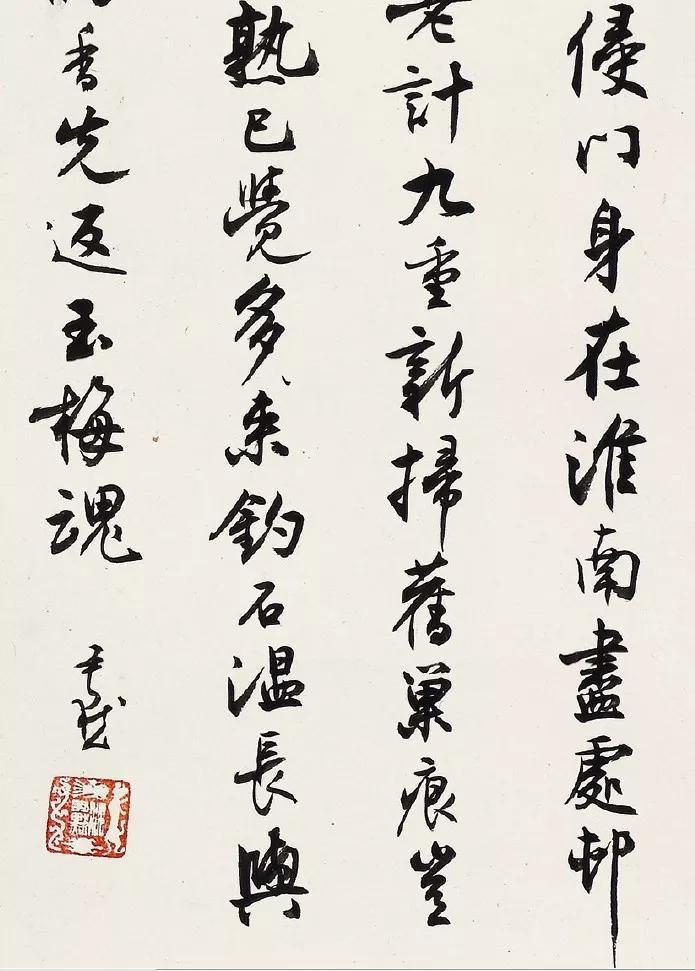 侵門身在淮南盡處邨
老計九重新掃舊巢痕豈
熟已覺多來釣石溫長與
香先返玉梅魂
尹默